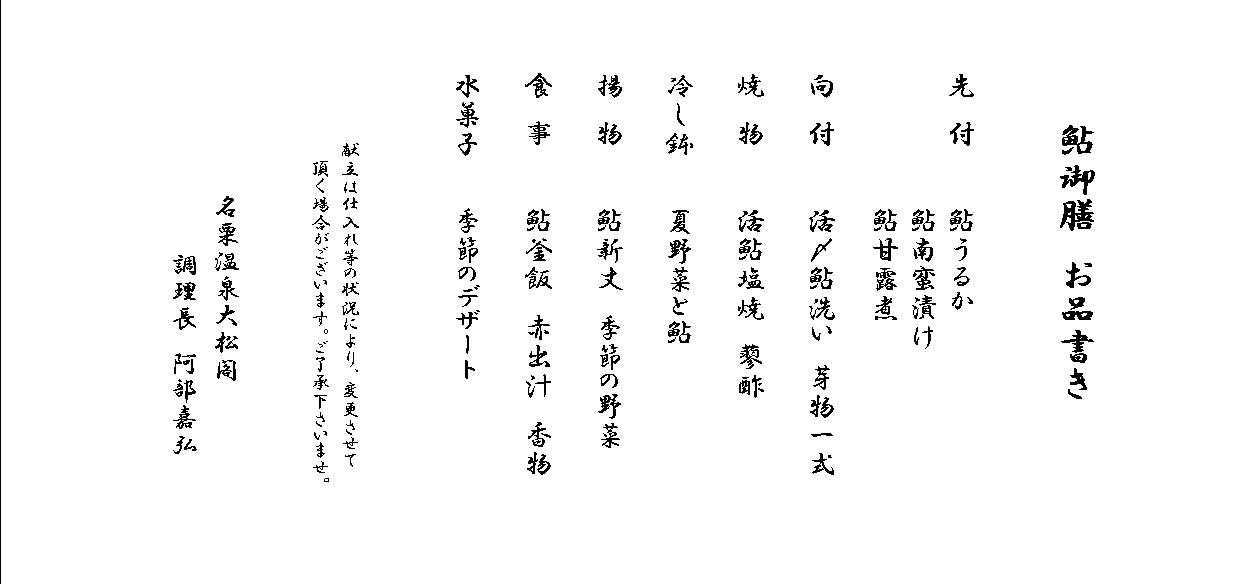 鮎御膳 お品書き
先付 鮎うるか
鮎南蛮漬け
鮎甘露煮
向付 活〆鮎洗い 芽物一式
焼物 活鮎塩焼 蓼酢
冷し鉢 夏野菜と鮎
揚物 鮎新丈 季節の野菜
食事 鮎釜飯 赤出汁 香物
水菓子 季節のデザート
献立は仕入れ等の状況により、変更させて
頂く場合がございます。ご了承下さいませ。
名栗温泉大松閣
調理長 阿部嘉弘